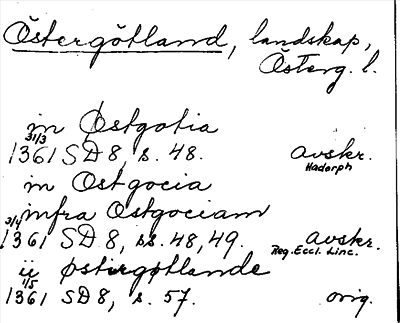 Östergötland, landskap,
Österg. l.
in Østgotia
31/3
1361 SD 8, s. 48. avskr.
Hadorph
in Ostgocia
infra Ostgociam
3/4
1361 SD 8, ss. 48, 49. avskr.
Reg. Eccl. Linc.
ii østirgøtlande
1/5
1361 SD 8, s. 57. orig.